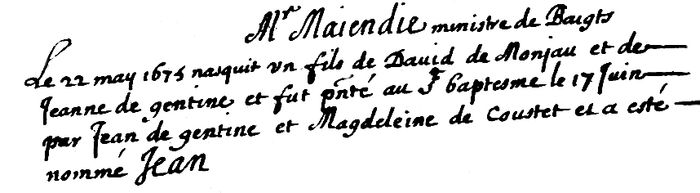 Mr Maiendie ministre de Baigts
Le 22 may 1675 nasquit vn fils de Dauid de Monjau et de
Jeanne de gentine et fut pnté au St baptesme le 17 Juin
par Jean de gentine et Magdeleine de Coustet et a esté
nommé Jean